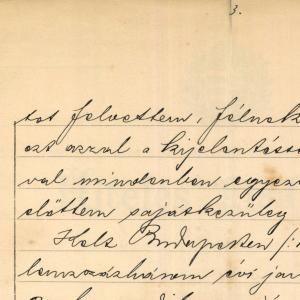 3.
tot felvettem, félnek
ezt azzal a kijelentéssel
val mindenben egyező
előttem sajátkezüleg
Kelt Budapesten /:
lemszázhárom évi jan